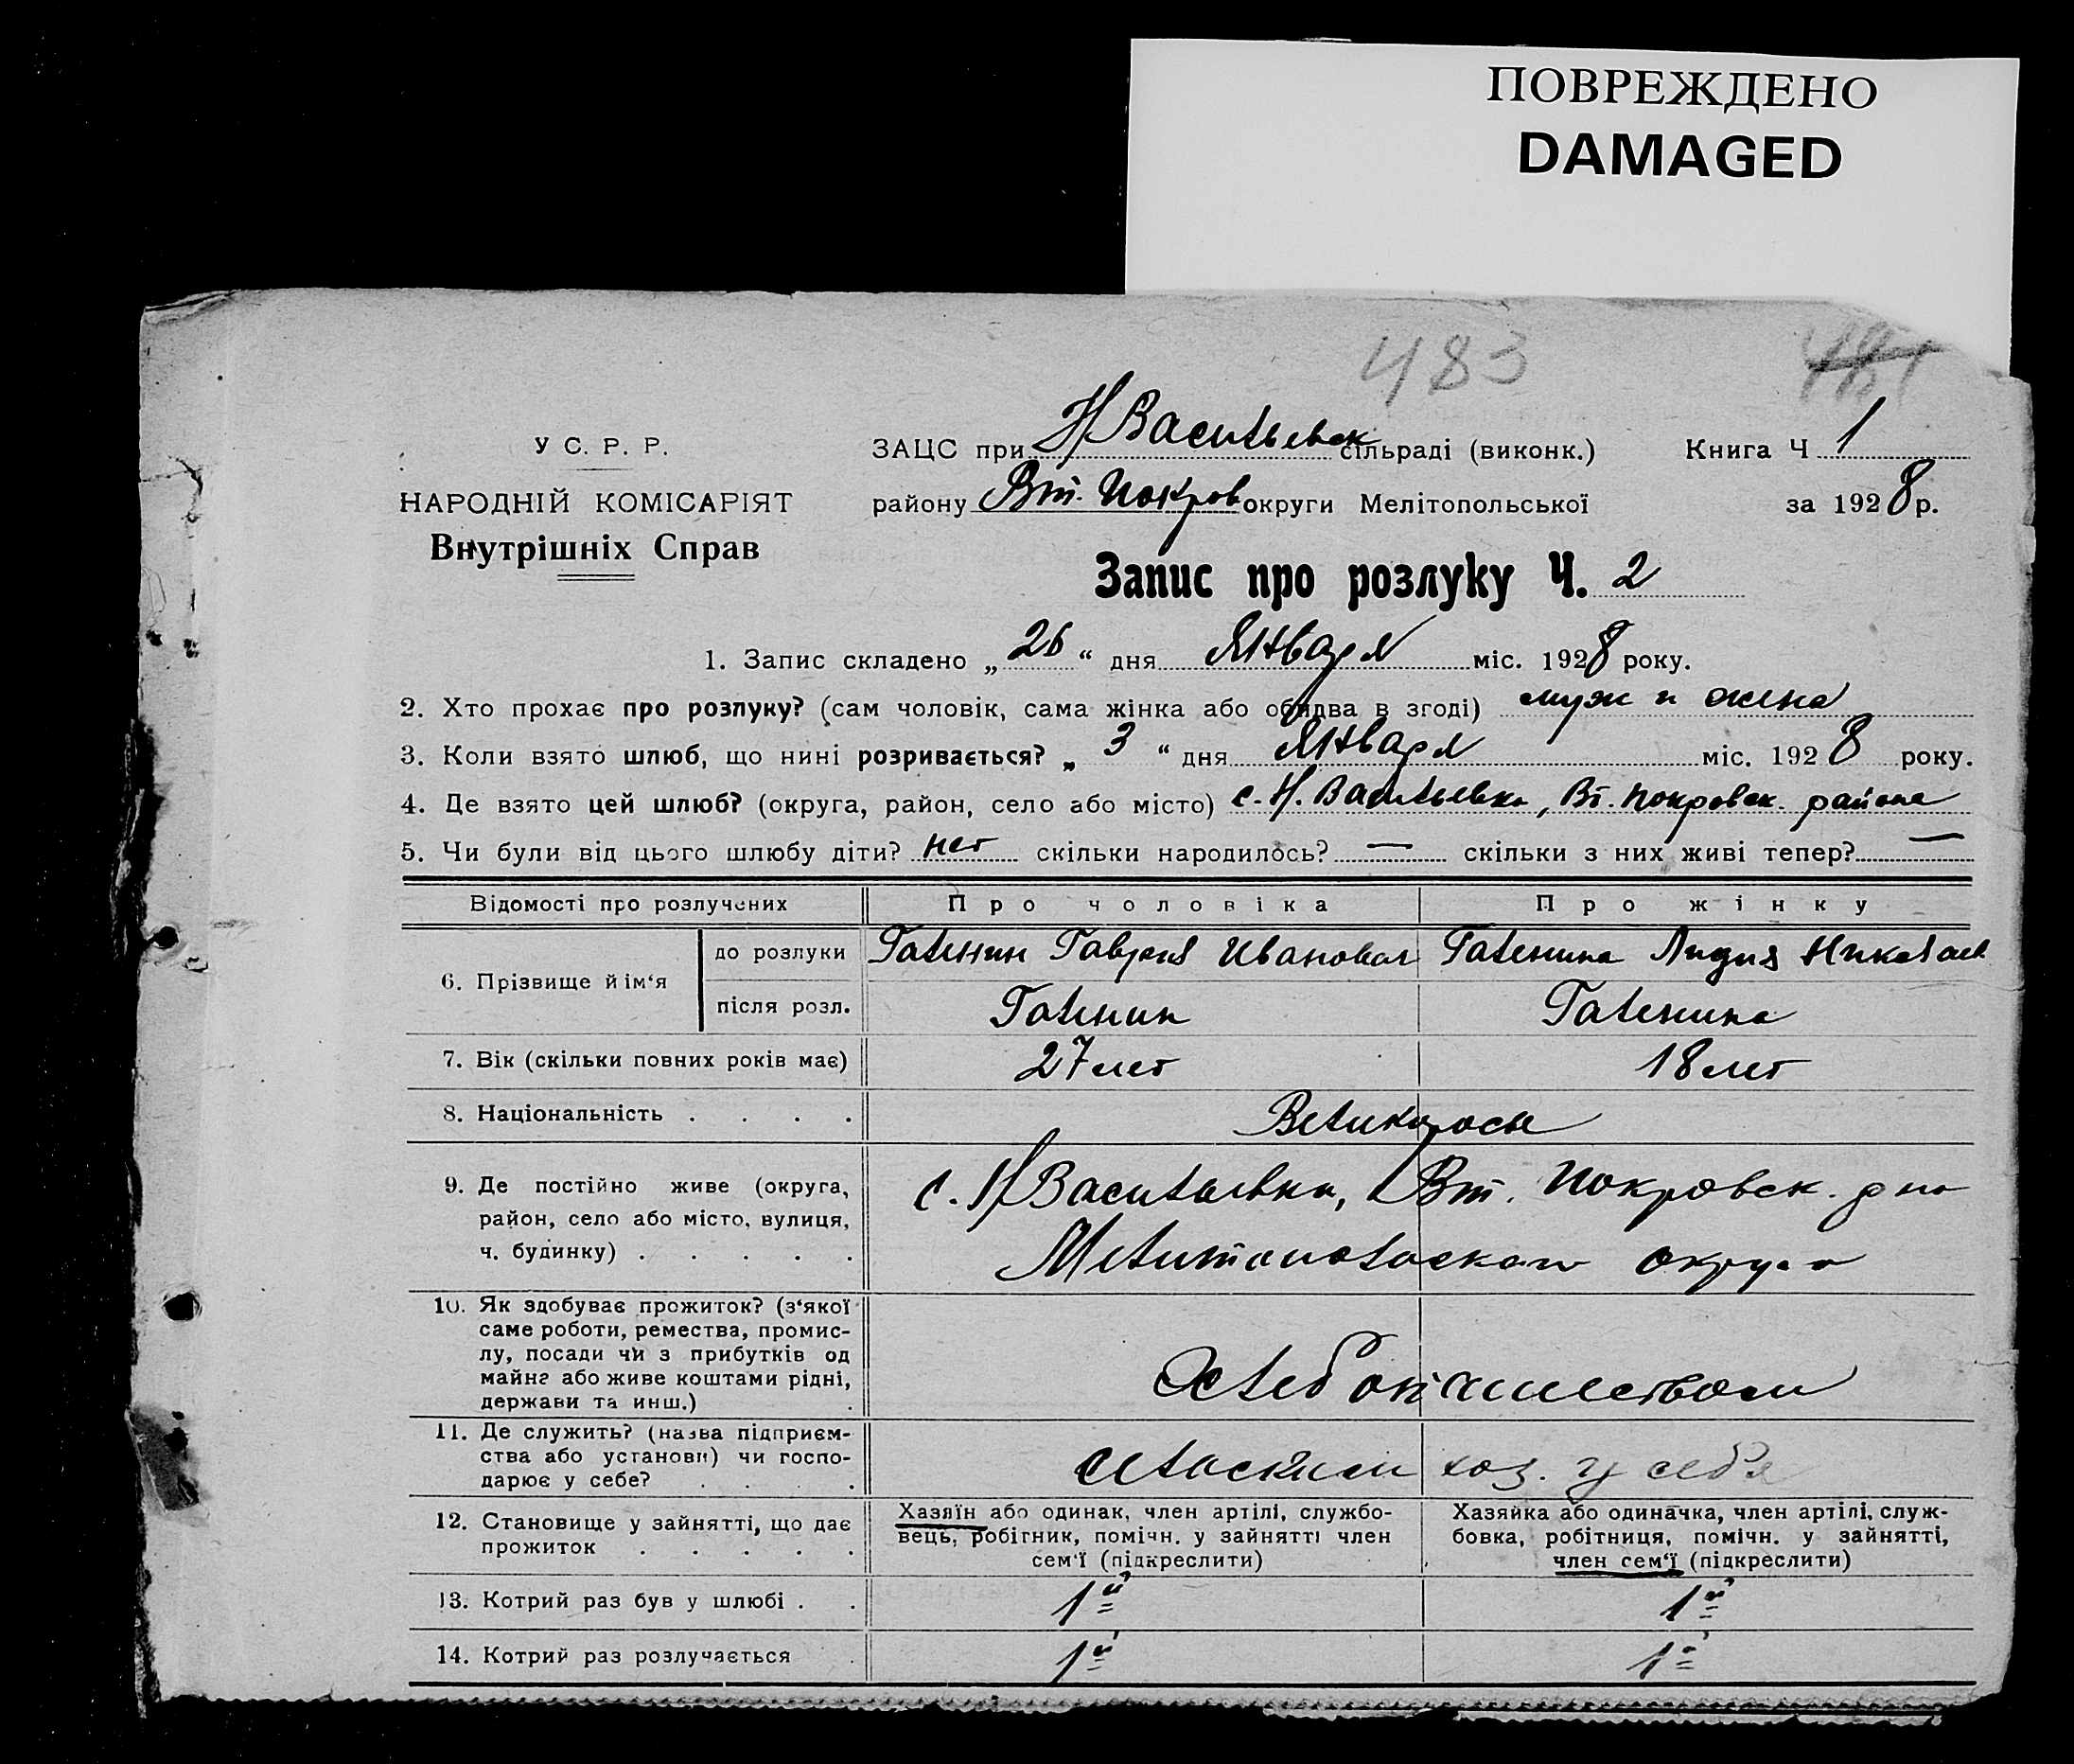 ПОВРЕЖДЕНО
DAMAGED
483
У С. Р. Р.
НАРОДНІЙ КОМІСАРІЯТ
Внутрішніх Справ
ЗАЦС при Н Васильевск сільраді (виконк.) Книга Ч 1
району Вт. Покров округи Мелітопольської за 1928 р.
Запис про розлуку Ч. 2
1. Запис складено „26“ дня Января міс. 1928 року.
2. Хто прохає про розлуку? (сам чоловік, сама жінка або обидва в згоді) муж и жена
3. Коли взято шлюб, що нині розривається? „3“ дня Января міс. 1928 року.
4. Де взято цей шлюб? (округа, район, село або місто) с. Н. Васильевка, Вт. Покровск. района
5. Чи були від цього шлюбу діти? нет скільки народилось? — скільки з них живі тепер? —
Відомості про розлучених Про чоловіка Про жінку
6. Прізвище й ім‘я
до розлуки Галенин Гаврил Иванович Галенина Лидия Николаев
після розл. Галенин Галенина
7. Вік (скільки повних років має) 27 лет 18 лет
8. Національність . . . . Великоросы
9. Де постійно живе (округа,
район, село або місто, вулиця,
ч. будинку) . . . . .
с. Н Васильевка, Вт. Покровск. р-на
Мелитопольского округа
10. Як здобуває прожиток? (з‘якої
саме роботи, ремества, промис-
лу, посади чи з прибутків од
майна або живе коштами рідні,
держави та инш.) .
Хлебопашеством
11. Де служить? (назва підприєм-
ства або установи) чи госпо-
дарює у себе? . . . .
сельским хоз. у себя
12. Становище у зайнятті, що дає
прожиток . . . . .
Хазяїн або одинак, член артілі, службо-
вець, робітник, помічн. у зайнятті член
сем‘ї (підкреслити)
Хазяйка або одиначка, член артілі, служ-
бовка, робітниця, помічн. у зайнятті,
член сем‘ї (підкреслити)
13. Котрий раз був у шлюбі . . 1й 1й
14. Котрий раз розлучається . 1й 1й